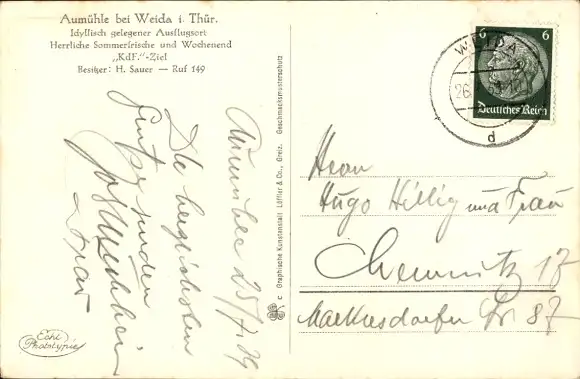 Aumühle bei Weida i. Thür.
Idyllisch gelegener Ausflugsort
Herrliche Sommerfrische und Wochenend
„KdF."-Ziel
Besitzer: H. Sauer — Ruf 149
Aumühle 25/7. 39
Die herzlichsten
Grüße senden
u. Frau
Echt
Phototypie
c Graphische Kunstanstalt Löffler & Co., Greiz. Geschmacksmusterschutz
6 6
Deutsches Reich
WEIDA
26.
d
Herrn
Hugo Hillig und Frau
Chemnitz 17
Markersdorfer Str. 87